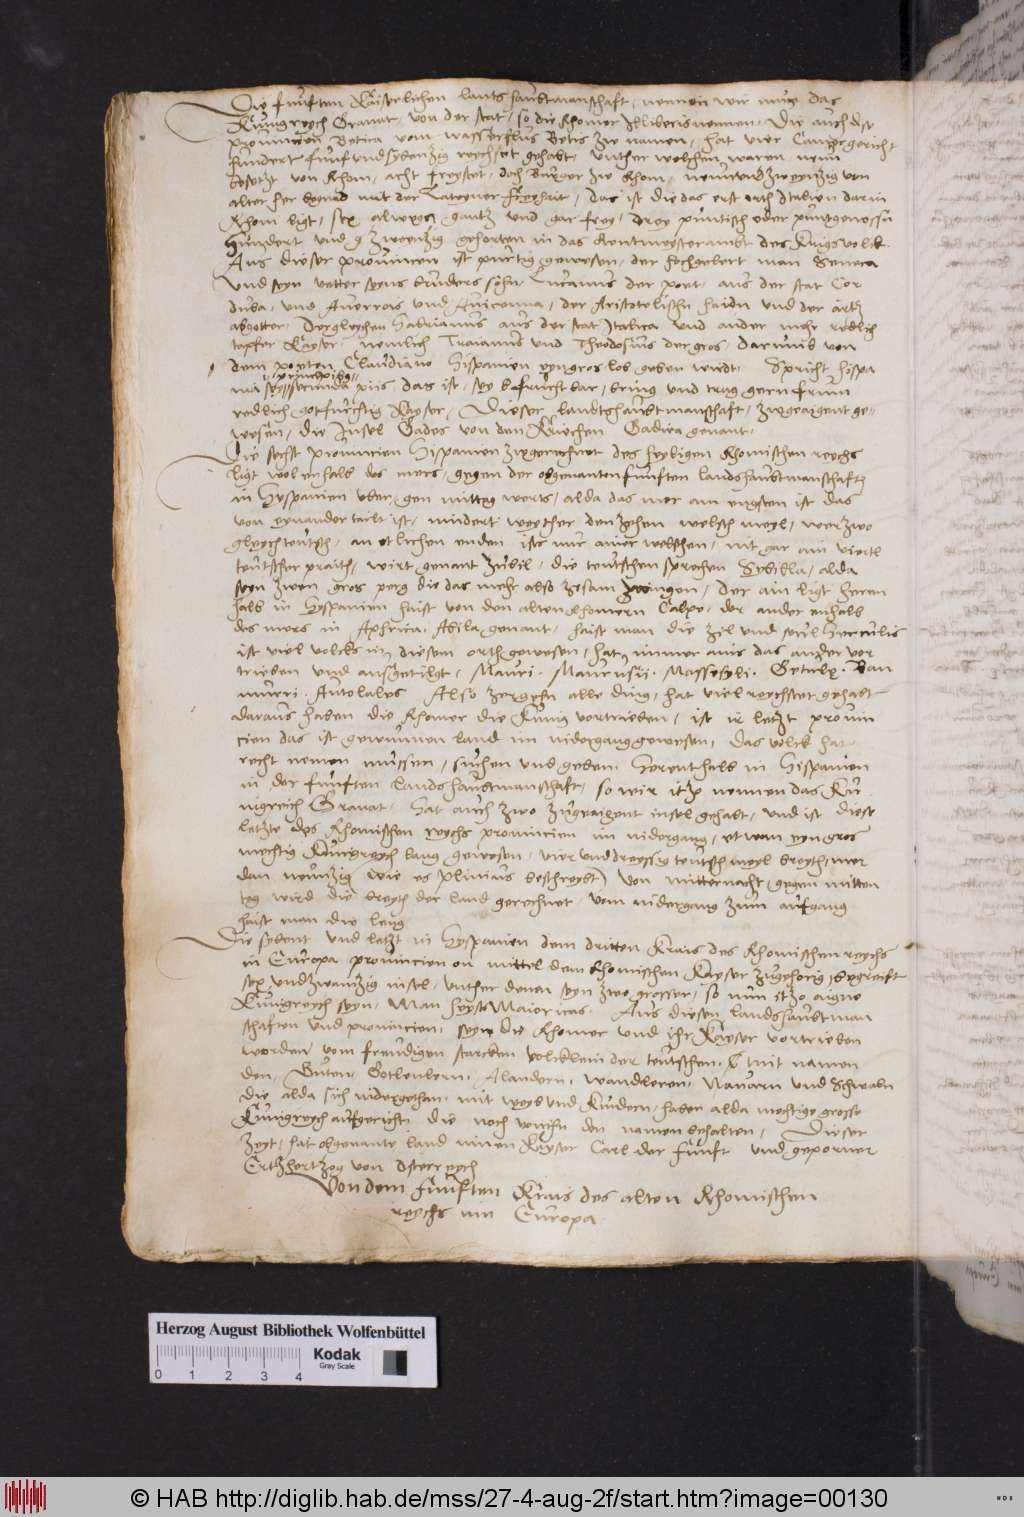 Die funften Kaiserlichen lants haubtmanschaft, nennen wir nun das
Künigreych Granat, von der stat, so die Rhomer Illiberis nennen. Die auch ist
provincien Betica vom wasserflus Betis zu namen, hat vier Camergericht
hundert funf und sybenzig reychstet gehabt, unther welchen waren neun
besetzt von Rhom, acht freystet, doch Burger zu Rhom, neunundzweynzig von
alter her begnad mit der Lateyner freyhait, das ist die das erst orth Italien darin
Rhom ligt, sex alwegen gantz und gar frey, drey püntisch oder püntgenossn
Hundert und zweenzig gehorten in das Rentmeysterambt des Kunigs volck.
Aus dieser provincien ist purtig gewesen, der hochgelert man Seneca
Und seyn vetter seyns bruders sohn, Lucanus der poet, aus der stat Cor
duba, und Averrois und Avicenna, der Aristotelischn haidn und der ärtz
abgotter. Dergleychen Hadrianus aus der stat Italica und ander mehr redlich
tapfer Kayser, nemlich Traianus und Theodosius der gros, darumb von
dem poeten Claudiano Hispanien eyn gros lob geben wirdt. Spricht hispa
nia principibus
seys fecunda piis das ist, sey befruchtbar, bring und trag gern frum
redlich gotsfurchtig Kayser, Dieser landtshaubtmanschaft, zugeaigent ge-
wesen, die Insel Gades von den Kriechen Gadira genant.
Die sechst provincien Hispanien zugerechnet des heyligen Rhomischen reychs
ligt wol enhalb des mers, gegen der obgenanten funften landshaubtmanschaft
in Hyspanien uber, gen mittag werts, alda das mer am engsten ist das
von eynander tailt ist, nindert weyther den zehen welsch meyl, wer zwo
gleych teutsch, an etlichen enden ist nur ainer welschen, nit gar ain viertl
teutscher praith, wirt genant Zubil, die teutschen sprechen Sybilla, alda
seyn zwen gros perg die das mehr also zesam zwingen, der ain ligt heren
halb in Hyspanien haist von den alten Rhomern Calpe, der ander enhalb
des mers in Aphrica, Abila genant, haist man die zil und seul Herculis
ist viel volcks in diesem orth gewesen, hat immer ains das ander ver
trieben und ausgetilgt, Mauri. Maurusii. Massesyli. Getule. Ban
nurri. Autolales Also zergehn alle ding, hat viel reychstet gehabt
daraus haben die Rhomer die Künig vertrieben, ist ir letzt provin
cien das ist gewunnen land im nidergang gewesen, das volck hat
recht nemen mussen, suchen und geben. Herenthalb in Hispanien
in der funften landshaubtmanschaft, so wir itz nennen das Kü
nigreich Granat, Hat auch zwo zugeaigent insel gehabt, und ist diese
letzte des Rhomischen reychs provincien im nidergang, etwan eyn gros
mechtig Künigreych lang gewesen, vier und dreyssig teutsch meyl breyth, mer
dan neunzig wie es Plinius beschreybt) Von mitternacht gegen mitten
tag wird die breyth der land gerechnet, vom nidergang zum aufgang
haist man die leng
Die sybent und letzt in Hyspanien dem dritten Krais des Rhomischen reychs
in Europa provincien on mittel dem Rhomischen Kayser zugehorig, begreift
sex und zwainzig insel, unther denen seyn zwo grosser, so nun itzo aigne
Künigreych seyn, Man heyst Maioricas. Aus diesen landshaubtman
schaften und provincien, seyn die Rhomer und ihr Kayser vertrieben
worden vom freudigen starcken volcklein der teutschen, mit namen
den, Guten. Gotlendern. Alandern. Wandleren. Navarn und Schwabn
die alda sich nidergethan, mit weyb und kindern, haben alda mechtige grosse
Künigreych aufgericht, die noch den namen behalten, Dieser
zeyt, hat obgenante land innen Kayser Carl der funft und geporner
Ertzhertzog von Osterreych
Von dem funften Krais des alten Rhomischen
reychs inn Europa.
Herzog August Bibliothek Wolfenbüttel
Kodak
Gray Scale
0 1 2 3 4
© HAB http://diglib.hab.de/mss/27-4-aug-2f/start.htm?image=00130